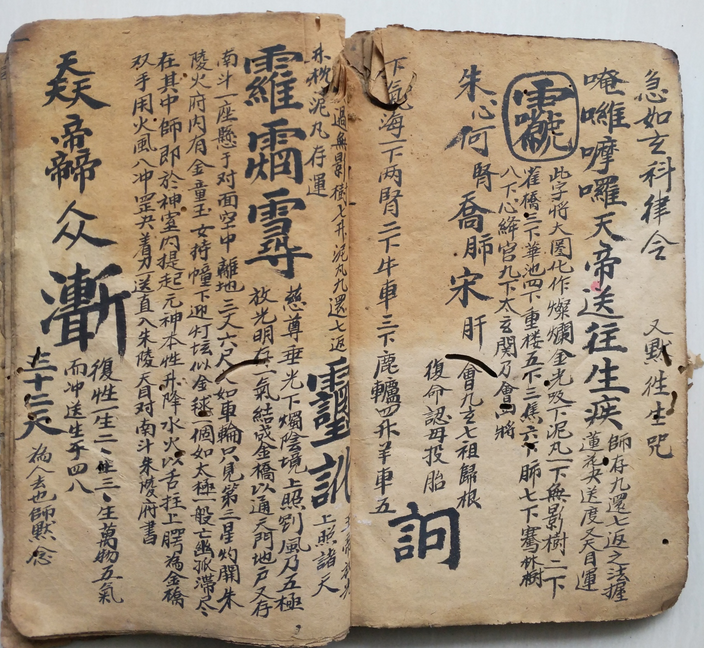 急如玄科律令　又默往生咒
天帝送往生疾
師存九還七返之法握
蓮花夬送度又夬目運
此字將大圈化作燦爛金光吸下泥丸一下無影樹二下
雀橋三下華池四下重楼五下三焦六下肺七下蹇林樹
八下心絳宮九下太玄関乃會一將
朱心何腎喬肺宋肝
會九玄七祖歸根
復命認母投胎
下氣海一下两腎二下牛車三下鹿轤四升羊車五
訶
過無影樹七升泥丸九還七返
泥丸存運
上照諸天
慈尊垂光下燭陰境上照罰風乃五極
放光明存一氣結成金橋以通天門地户又存
南斗一座懸于对面空中離地三丈六尺大如車輪只見第三星灼開朱
陵火府内有金童玉女持幢下迎灯坛似金毬一個如太極一般亡幽孤滞尽
在其中師即於神室内提起元神本性升降水火以舌拄上腭為金橋
双手用火風八冲罡夬着力一送直入朱陵天目对南斗朱陵府書
众
復性一生二二生三三生萬物五氣
而冲送生于四八
三十二天
為人去也師默念